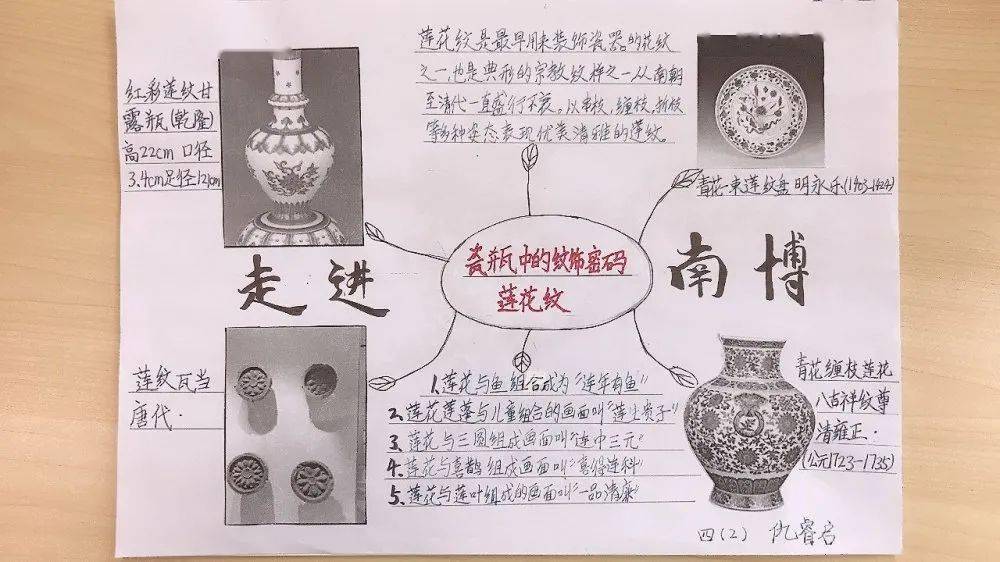 红彩莲纹甘
露瓶(乾隆)
高22cm 口径
3.4cm足径12cm
莲花纹是最早用来装饰瓷器的花纹
之一,也是典形的宗教纹样之一从南朝
至清代一直盛行不衰。以束枝,缠枝,折枝
等多种姿态表现优美清雅的莲纹。
青花一束莲纹盘 明永乐(1403-1424)
走进
瓷瓶中的纹饰密码
莲花纹
南博
莲纹瓦当
唐代.
1.莲花与鱼组合成为“连年有鱼”
2.莲花莲蓬与儿童组合的画面叫“莲生贵子”
3.莲花与三圆组成画面叫“连中三元”
4.莲花与喜鹊组成画面叫“喜得连科”
5.莲花与莲叶组成的画面叫“一品清廉”
青花缠枝莲花
八吉祥纹尊
清雍正.
(公元1723-1735)
四(2) 仇睿